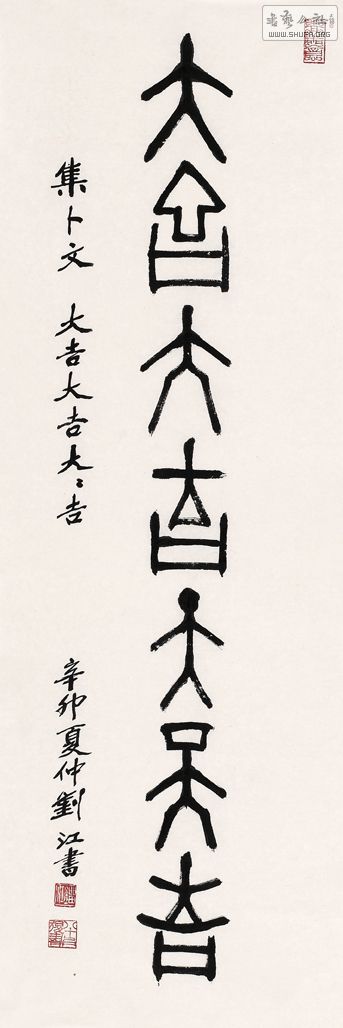 书艺公社
WWW.SHUFA.ORG
大吉大吉大大吉
集卜文 大吉大吉大〻吉 辛卯夏仲劉江書